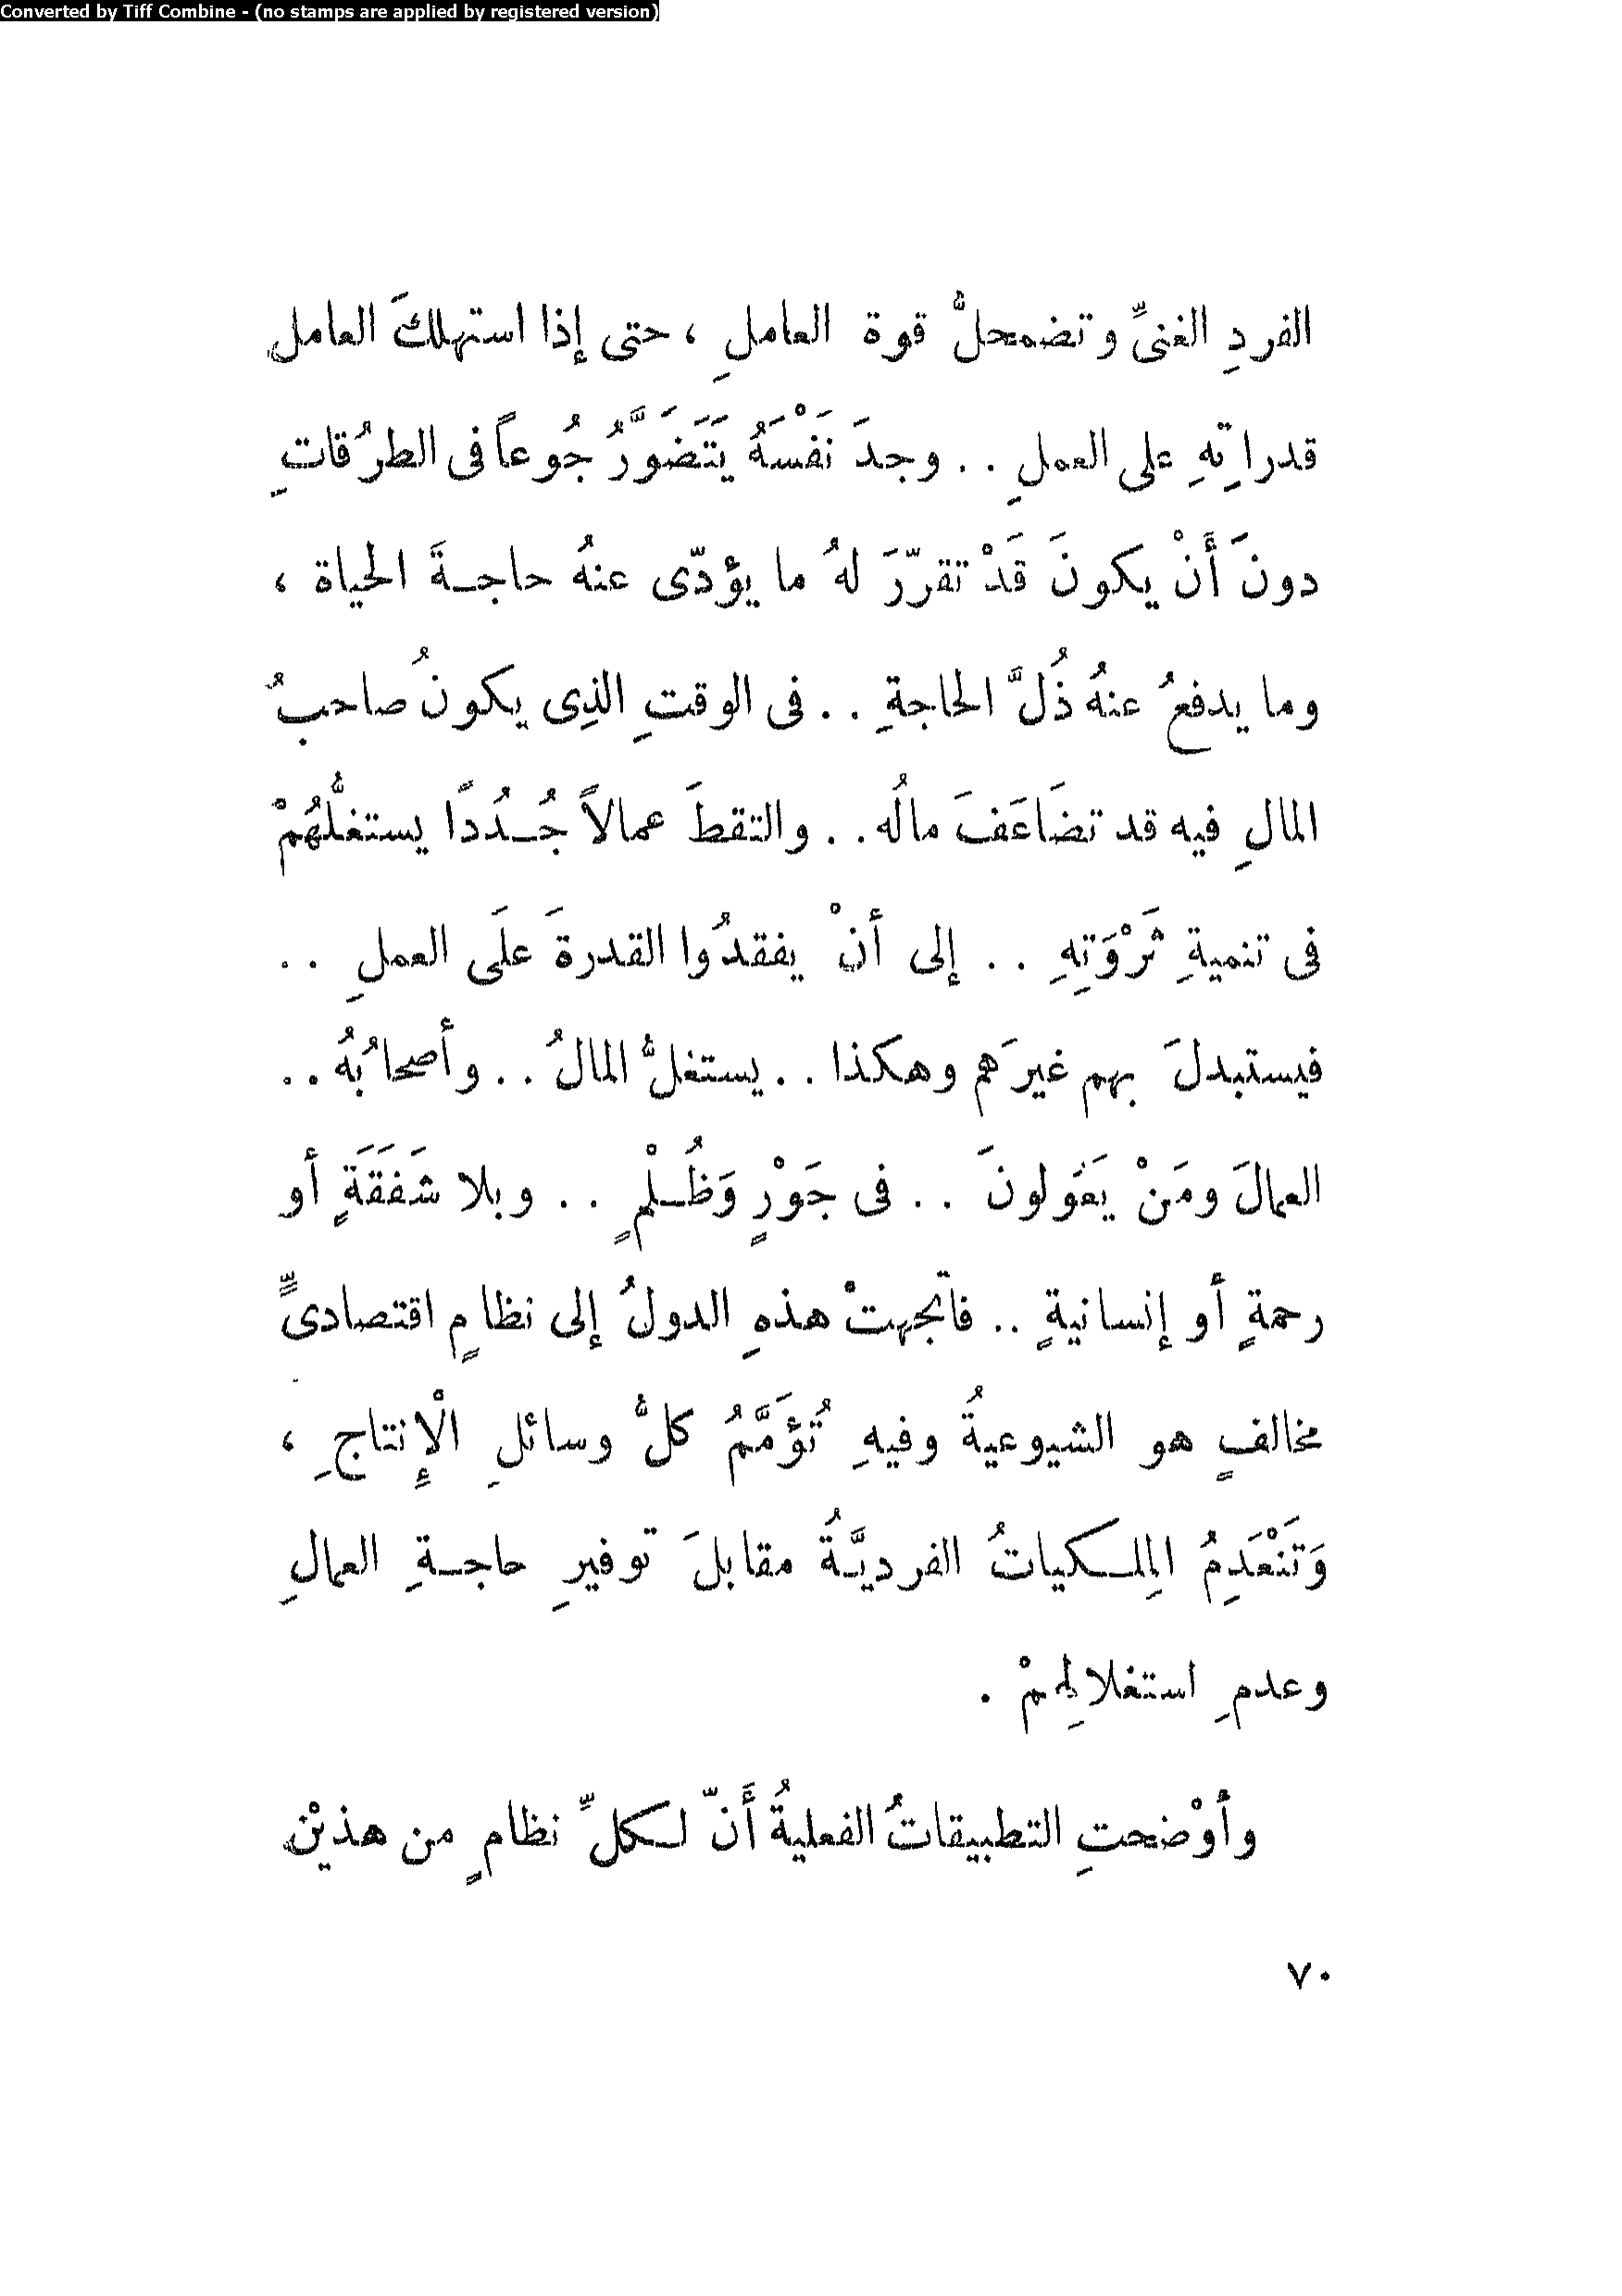 Converted by Tiff Combine - (no stamps are applied by registered version)
الفردِ الغنىِّ وتضمحلُّ قوة العاملِ ، حتى إذا استهلكَ العامل
قدراتِهِ على العملِ . . وجدَ نَفْسَهُ يَتَضَوَّرُ جُوعاً فى الطرُقاتِ
دونَ أَنْ يكونَ قَدْ تقرّرَ لهُ ما يؤدّى عنهُ حاجـةَ الحياة ،
وما يدفعُ عنهُ ذُلَّ الحاجةِ . . فى الوقتِ الذِى يكونُ صاحبُ
المالِ فيه قد تضَاعَفَ مالُه . . والتقطَ عمالاً جُـدُدًا يستغلُّهُمْ
فى تنميةِ ثَرْوَتِهِ . . إلى أنْ يفقدُوا القدرةَ علَى العملِ . .
فيستبدلَ بهم غيرَهم وهكذا . . يستغلُّ المالُ . . وأصحابُهُ . .
العمالَ ومَنْ يَعُولونَ . . فى جَوْرٍ وَظُـلْمٍ . . وبلا شَفَقَةٍ أو
رحمةٍ أو إنسانيةٍ . . فاتّجهتْ هذهِ الدولُ إلى نظامٍ اقتصادىٍّ
مخالفٍ هو الشيوعيةُ وفيهِ تُؤَمَّمُ كلُّ وسائلِ الْإِنتاجِ ،
وَتَنْعَدِمُ المِلـكياتُ الفرديَّـةُ مقابلَ توفيرِ حاجـةِ العمالِ
وعدمِ استغلالِهمْ .
وأوْضحتِ التطبيقاتُ الفعليةُ أَنّ لـكلِّ نظامٍ من هذيْن
٧٠